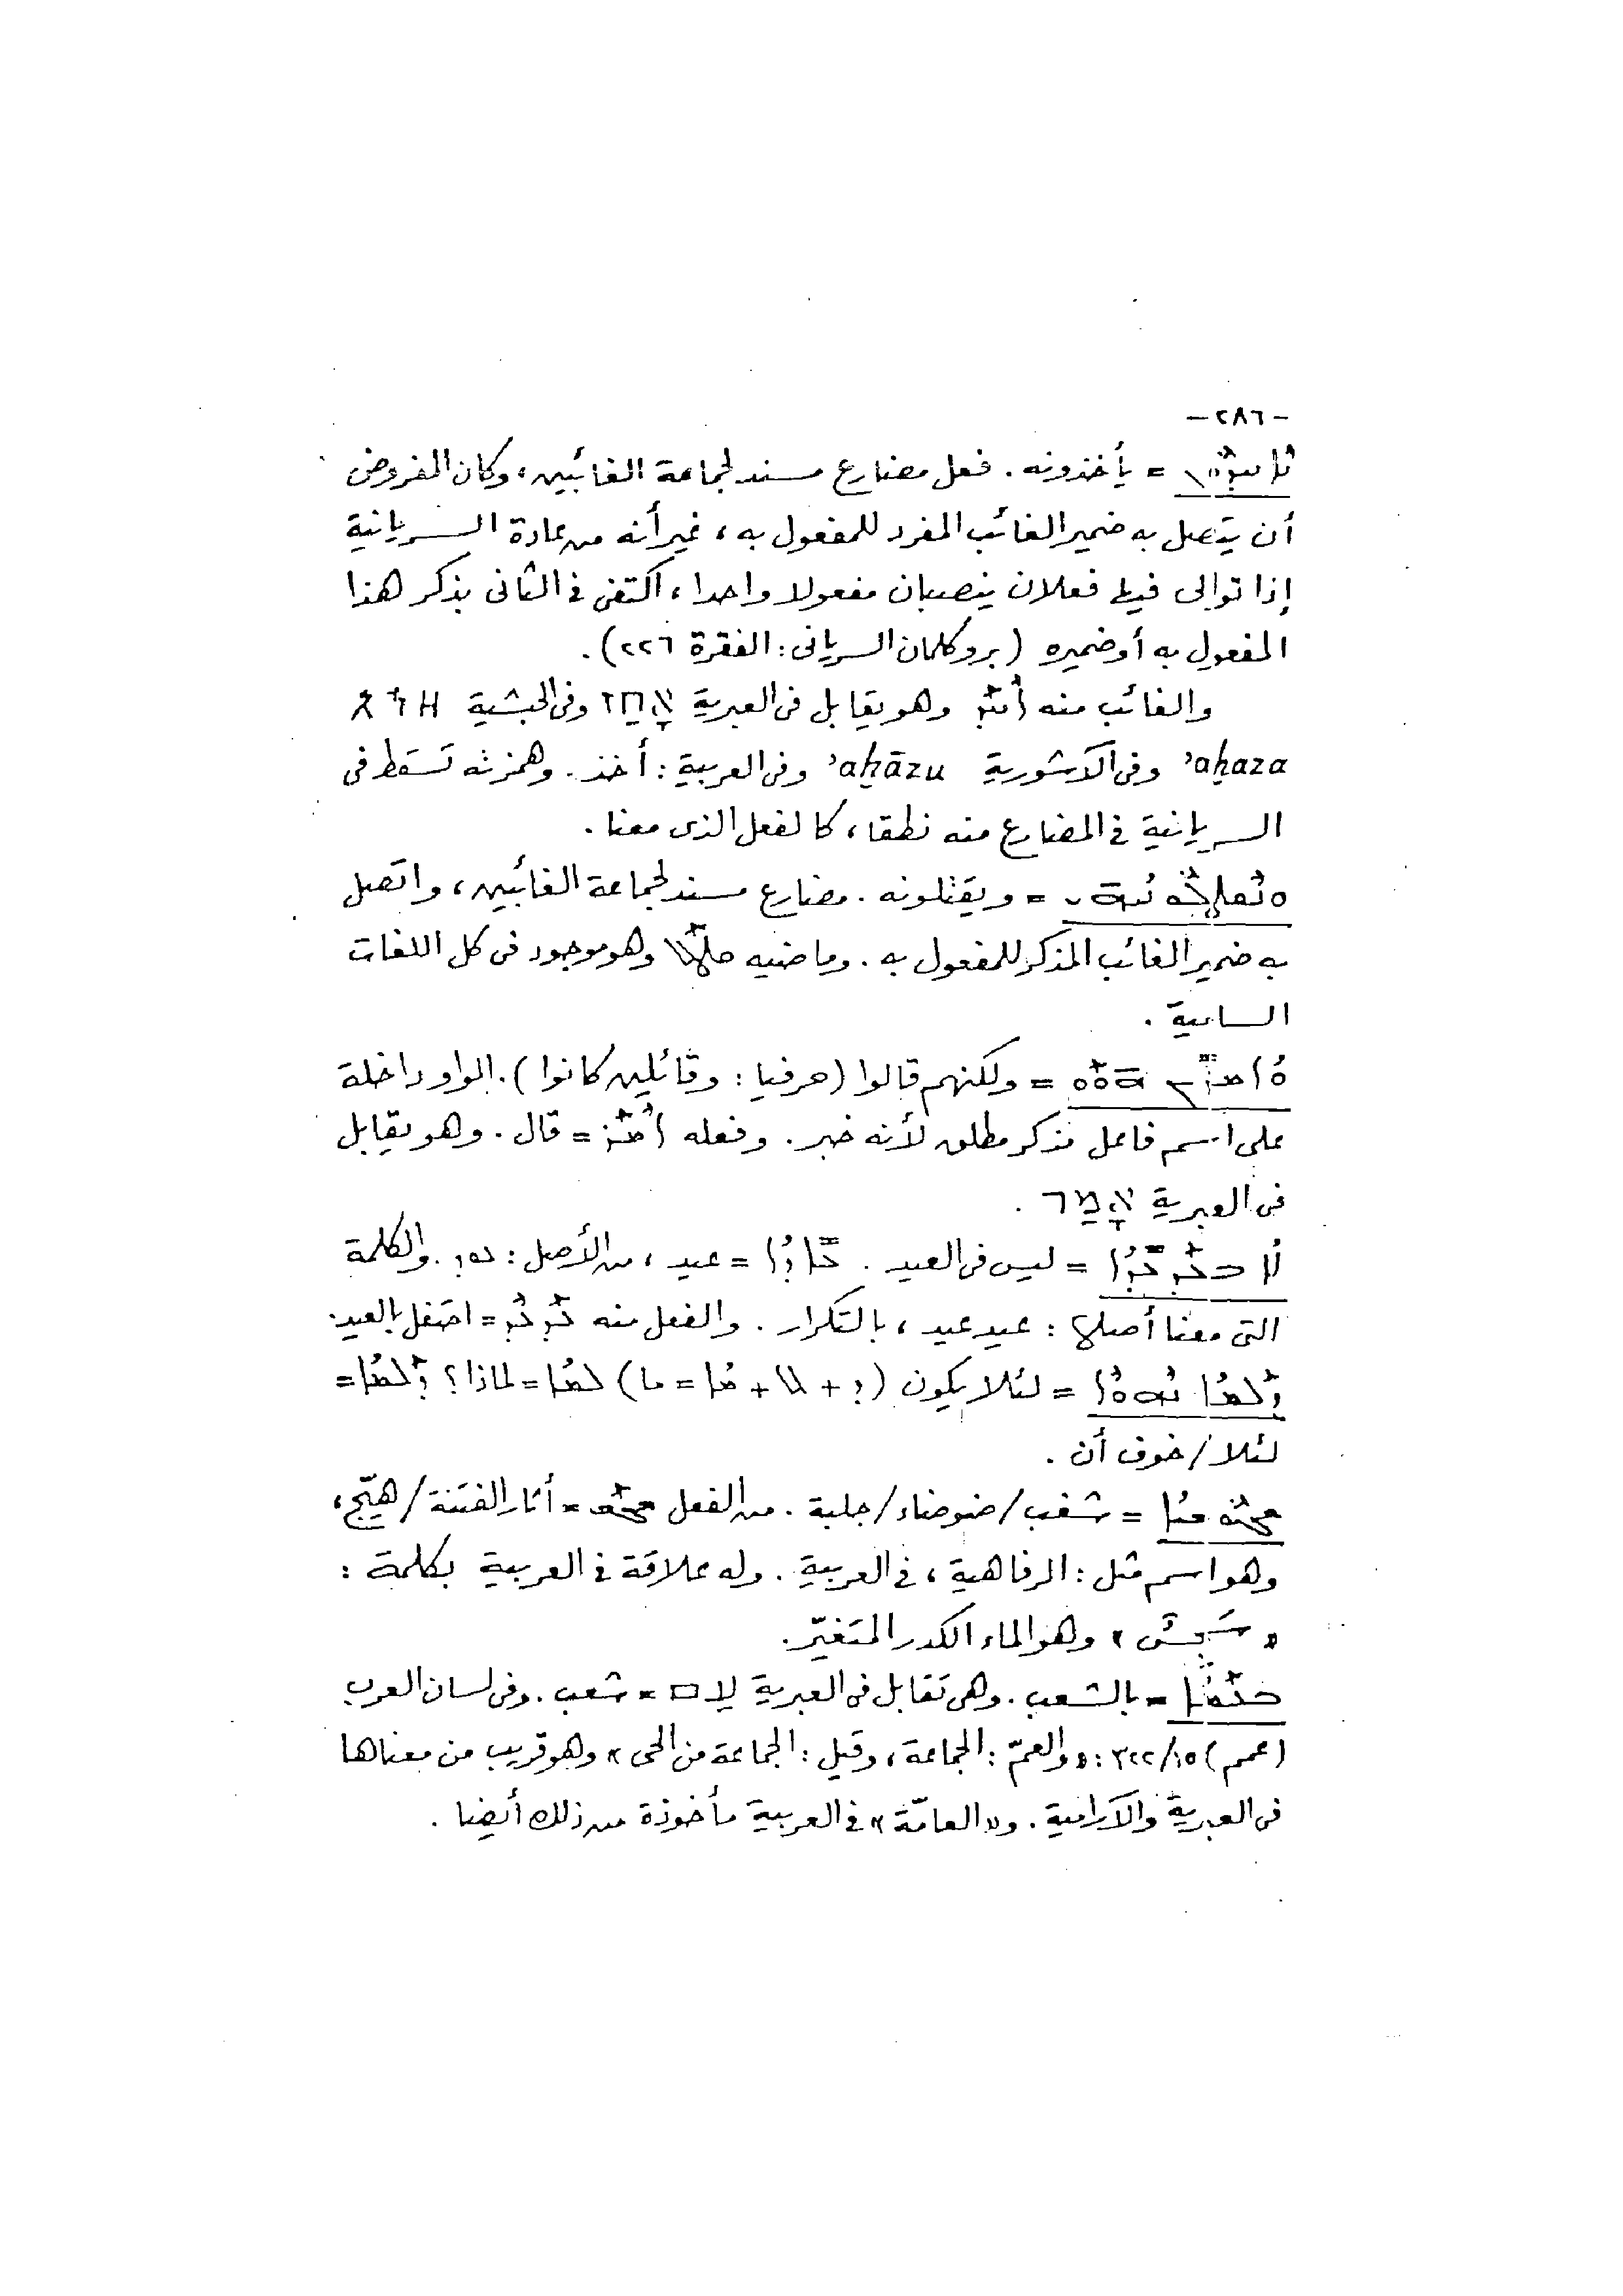 -٢٨٦-
ܢܐܚܕܘܢ = يأخذونه . فعل مضارع مسند لجماعة الغائبين ، وكان المفروض
أن يتصل به ضمير الغائب المفرد للمفعول به ، غير أنه من عادة السريانية
إذا توالى فيها فعلان ينصبان مفعولا واحدا ، اكتفى فى الثانى بذكر هذا
المفعول به أو ضميره (بروكلمان السريانى : الفقرة ٢٢٦) .
والغائب منه ܐܚܕ وهو يقابل فى العبرية אָחַז وفى الحبشية
’aḫaza وفى الآشورية ’aḫāzu وفى العربية : أخذ . وهمزته تسقط فى
السريانية فى المضارع منه نطقا ، كالفعل الذى معنا .
ܘܢܩܛܠܘܢܝܗܝ = ويقتلونه . مضارع مسند لجماعة الغائبين ، واتصل
به ضمير الغائب المذكر للمفعول به . وماضيه ܩܛܠ وهو موجود فى كل اللغات
السامية .
ܘܐܡܪܝܢ ܗܘܘ = ولكنهم قالوا (حرفيا : وقائلين كانوا) . الواو داخلة
على اسم فاعل مذكر مطلق لأنه خبر . وفعله ܐܡܪ = قال . وهو يقابل
فى العبرية אָמַר .
ܠܐ ܒܥܕܥܕܐ = ليس فى العيد . ܥܐܕܐ = عيد ، من الأصل : ܥܘܕ . والكلمة
التى معنا أصلها : عيد عيد ، بالتكرار . والفعل منه ܥܕܥܕ = احتفل بالعيد .
ܕܠܡܐ ܢܗܘܐ = لئلا يكون (ܕ + ܠܐ + ܡܐ = ما) ܠܡܐ = لماذا؟ ܕܠܡܐ =
لئلا / خوف أن .
ܫܓܘܫܝܐ = شغب / ضوضاء / جلبة . من الفعل ܫܓܫ = أثار الفتنة / هيّج ،
وهو اسم مثل : الرفاهية ، فى العربية . وله علاقة فى العربية بكلمة :
« سَجِسٌ » وهو الماء الكدر المتغيّر .
ܒܥܡܐ = بالشعب . وهى تقابل فى العبرية עם = شعب . وفى لسان العرب
(عمم) ٣٢٢/١٥ : «والعمّ : الجماعة ، وقيل : الجماعة من الحى» وهو قريب من معناها
فى العبرية والآرامية . و«العامّة» فى العربية مأخوذة من ذلك أيضا .